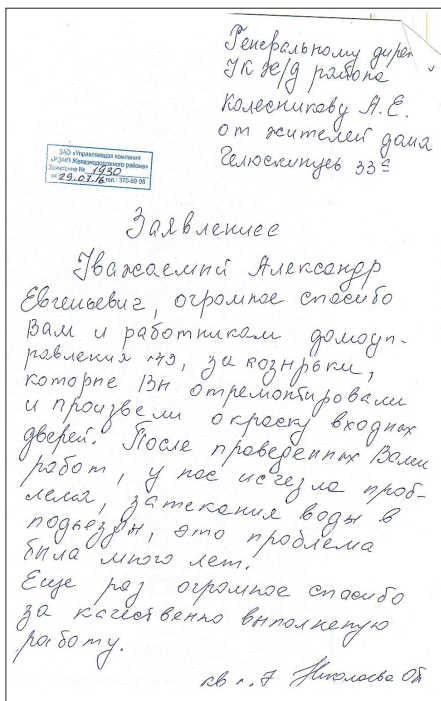 Генеральному дирек
УК Ж/Д района
Колесникову А.Е.
от жителей дома
Челюскинцев 33а
ЗАО «Управляющая компания
«РЭМП Железнодорожного района»
Заявление № 1930
от 29.07.16 тел.: 370-69-08
Заявление
Уважаемый Александр
Евгеньевич, огромное спасибо
Вам и работникам домоуп-
равления №3, за козырьки,
которые Вы отремонтировали
и произвели окраску входных
дверей. После проведенных Вами
работ, у нас исчезла проб-
лема, затекания воды в
подъезды, это проблема
была много лет.
Еще раз огромное спасибо
за качественно выполненую
работу.
кв №7 Николаева